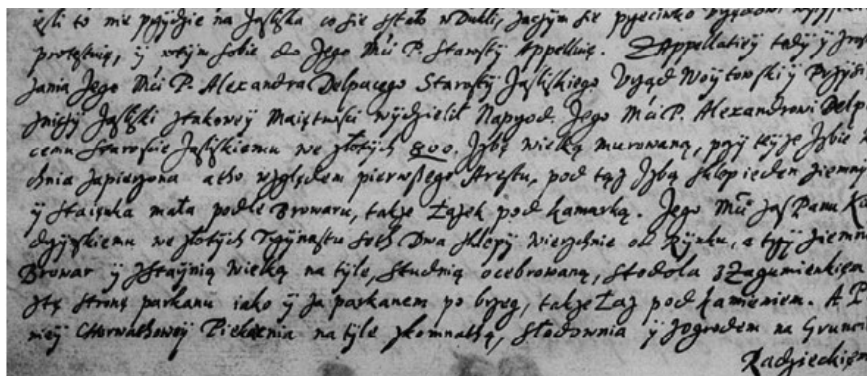 iesli to nie przydzie na Jasliska co sie stało w Dukli, inaczym sie przeciwko
protestuię, y wtym sobie do Jego Mći P. Starosty Appelluię. Zappellatiey tedy y
Jego Mći P. Alexandra Delpacego Starosty Jasliskiego Urząd Woytowski y
Jasliski ztakowey Maiętnosci wydzielił Naprzod. Jego Mći P. Alexandrowi Delpa
cemu Staroscie Jasliskiemu we złotych 800. Jzbę wielką murowaną, przy teyze Jzbie
chnia zapierzona a tho względem pierwszego Arestu, pod tąz Jzbą sklep ieden ziemny
y Staienka mała podle Browaru, takze Łazek pod kamarką. Jego Mći Jas Panu
dzynskiemu we złotych Trzynastu Seth Dwa sklepy wierzchnie od Rynku, a trzy ziemne
Browar y zstaynią wielką na tyle, studnią ocebrowaną, stodola z Zagumienkiem
ztę stronę parkanu iako y za parkanem po brzeg, takze Łaz pod kamieniem. A P
niey Chorwathowey Piekarnia na tyle zkomnathą, słodownia y zogrodem na
Radzieckiem